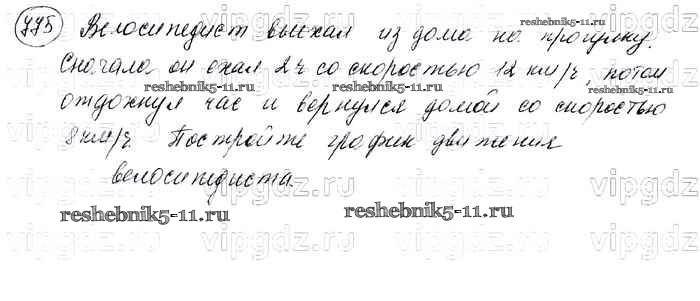 775 Велосипедист выехал из дома на прогулку.
Сначала он ехал 2ч со скоростью 12 км/ч, потом
отдохнул час и вернулся домой со скоростью
8км/ч. Постройте график движения
велосипедиста.
reshebnik5-11.ru
reshebnik5-11.ru
reshebnik5-11.ru
reshebnik5-11.ru
vipgdz
vipgdz
vipgdz
vipgdz